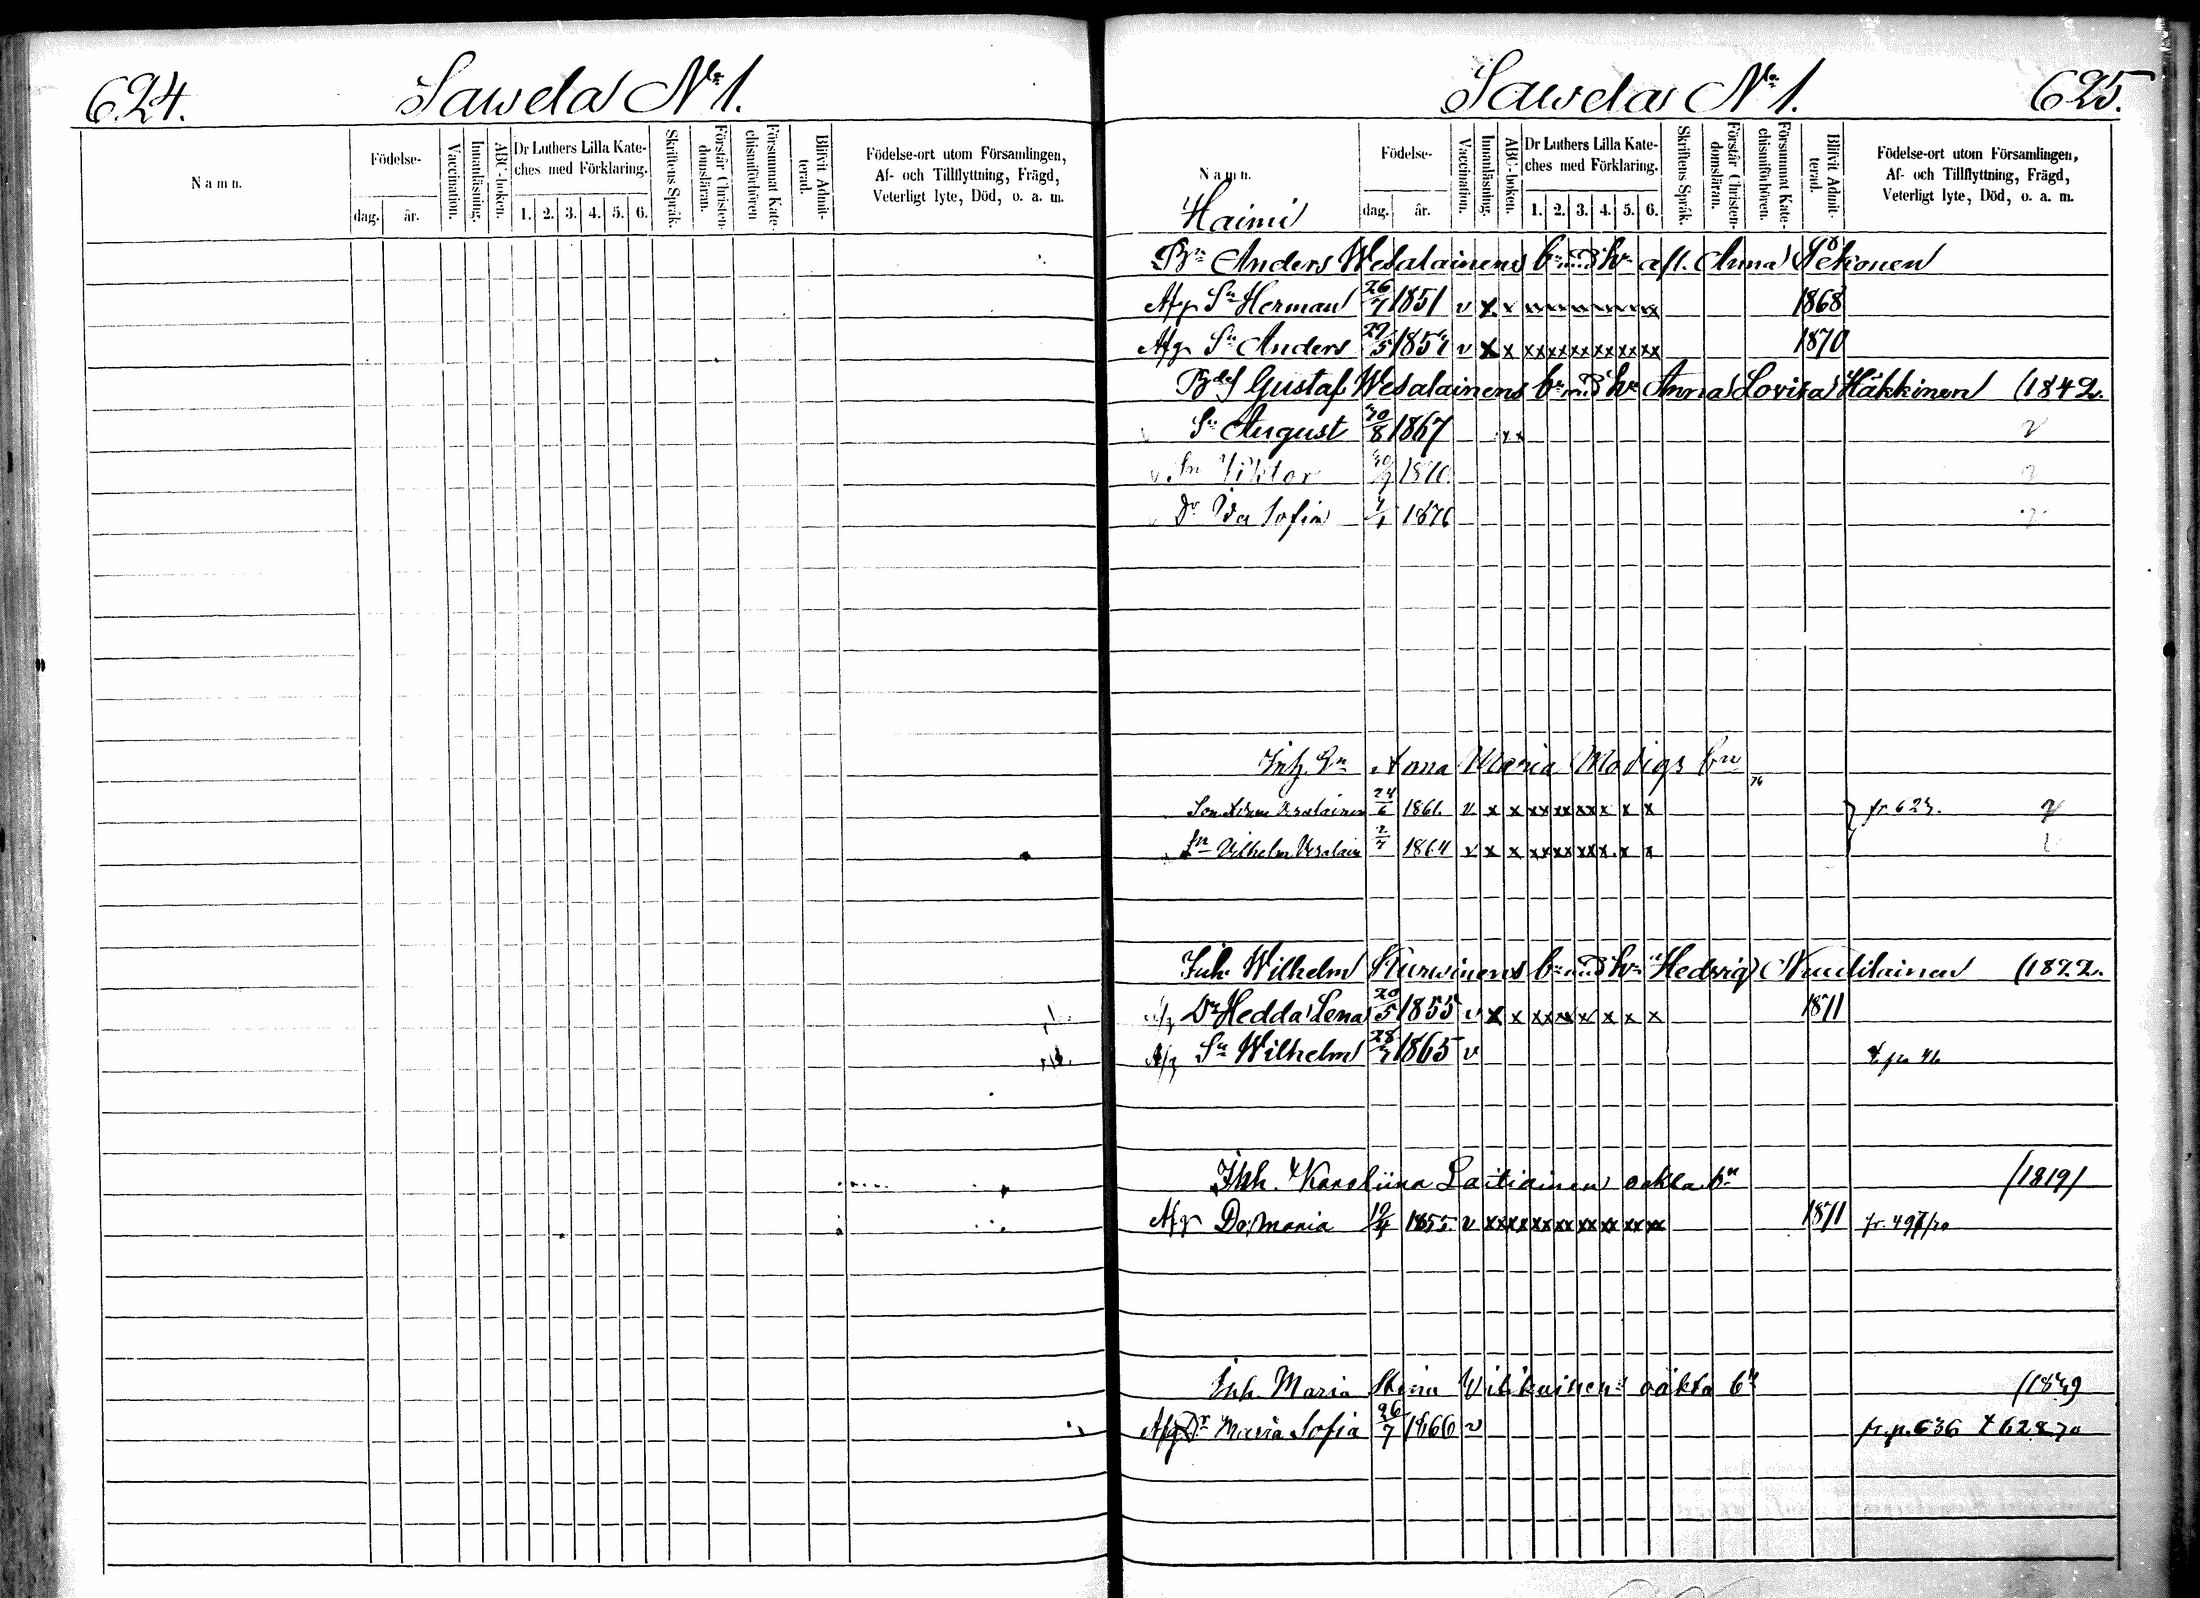 624.
Sawela No 1.
Namn.
Födelse-
dag.
år.
Vaccination.
Innanläsning.
ABC-boken.
Dr Luthers Lilla Kate-
ches med Förklaring.
1. 2. 3. 4. 5. 6.
Skriftens Språk.
Förstår Christen-
domsläran.
Försummat Kate-
chismiförhören
Blifvit Admit-
terad.
Födelse-ort utom Församlingen,
Af- och Tillflyttning, Frägd,
Veterligt lyte, Död, o. a. m.
Sawela No 1.
625.
Namn.
Haimi
Födelse-
dag.
år.
Vaccination.
Innanläsning.
ABC-boken.
Dr Luthers Lilla Kate-
ches med Förklaring.
1. 2. 3. 4. 5. 6.
Skriftens Språk.
Förstår Christen-
domsläran.
Försummat Kate-
chismiförhören.
Blifvit Admit-
terad.
Födelse-ort utom Församlingen,
Af- och Tillflyttning, Frägd,
Veterligt lyte, Död, o. a. m.
Bn Anders Wesalainens bn m. d. hu afl. Anna Pekonen
Afg Sn Herman 26/7 1851 v x x xx xx xx xx xx xx 1868
Afg Sn Anders 5 185 v x x xx xx xx xx xx xx 1870
Gustaf Wesalainens bn m. d. hu Anna Lovisa Häkkinen (1842.
Sn August 30/8 1867 v
Sn Viktor 1870
Dr Ida Sofia 1/1 1876
Inh. Anna Maria Modigs bn
Son Adam Vesalainen 24/6 1861. v x x xx xx xx x x x fr. 62
Sn Vilhelm Vesalain 2/7 1864 v x x xx xx xx x x x
Inh. Wilhelm Kurwinens bn m. d. hu Hedvig Nuutilainen (1822.
Dr Hedda Lena 20/5 1855 v x x xx xx x x x x 1871
Afg Sn Wilhelm 28/7 1865 v
Inh. Karoliina Laitiainen oäkta bn (1819)
Afg Dr Maria 19/4 1855. v xx xx xx xx xx xx xx xx 1871
Inh. Maria Stina oäkta bn
Afg Dr Maria Sofia 26/7 1866 v fr. p. 636 t 628 70